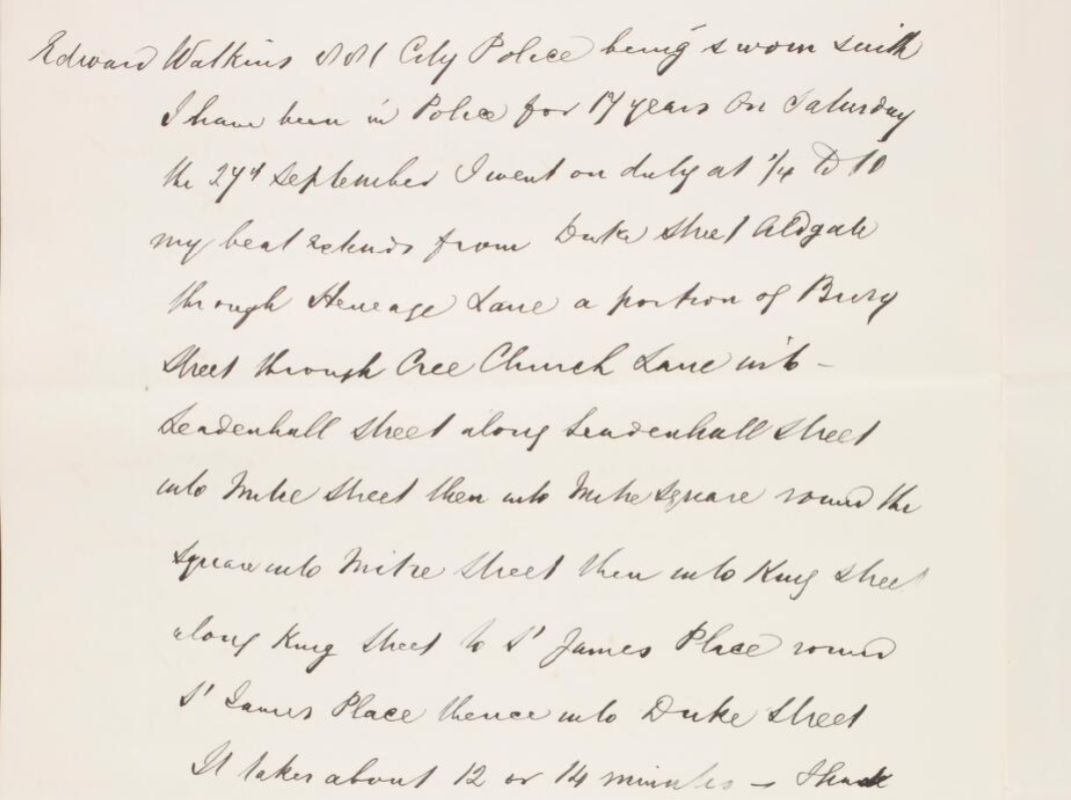 Edward Watkins 881 City Police being sworn saith
I have been in Police for 17 years On Saturday
the 29th September I went on duty at 1/4 to 10
my beat extends from Duke Street Aldgate
through Heneage Lane a portion of Bury
Street through Cree Church Lane into -
Leadenhall Street along Leadenhall Street
into Mitre Street then into Mitre Square round the
Square into Mitre Street then into King Street
along King Street to St James Place round
St James Place thence into Duke Street
It takes about 12 or 14 minutes - I had